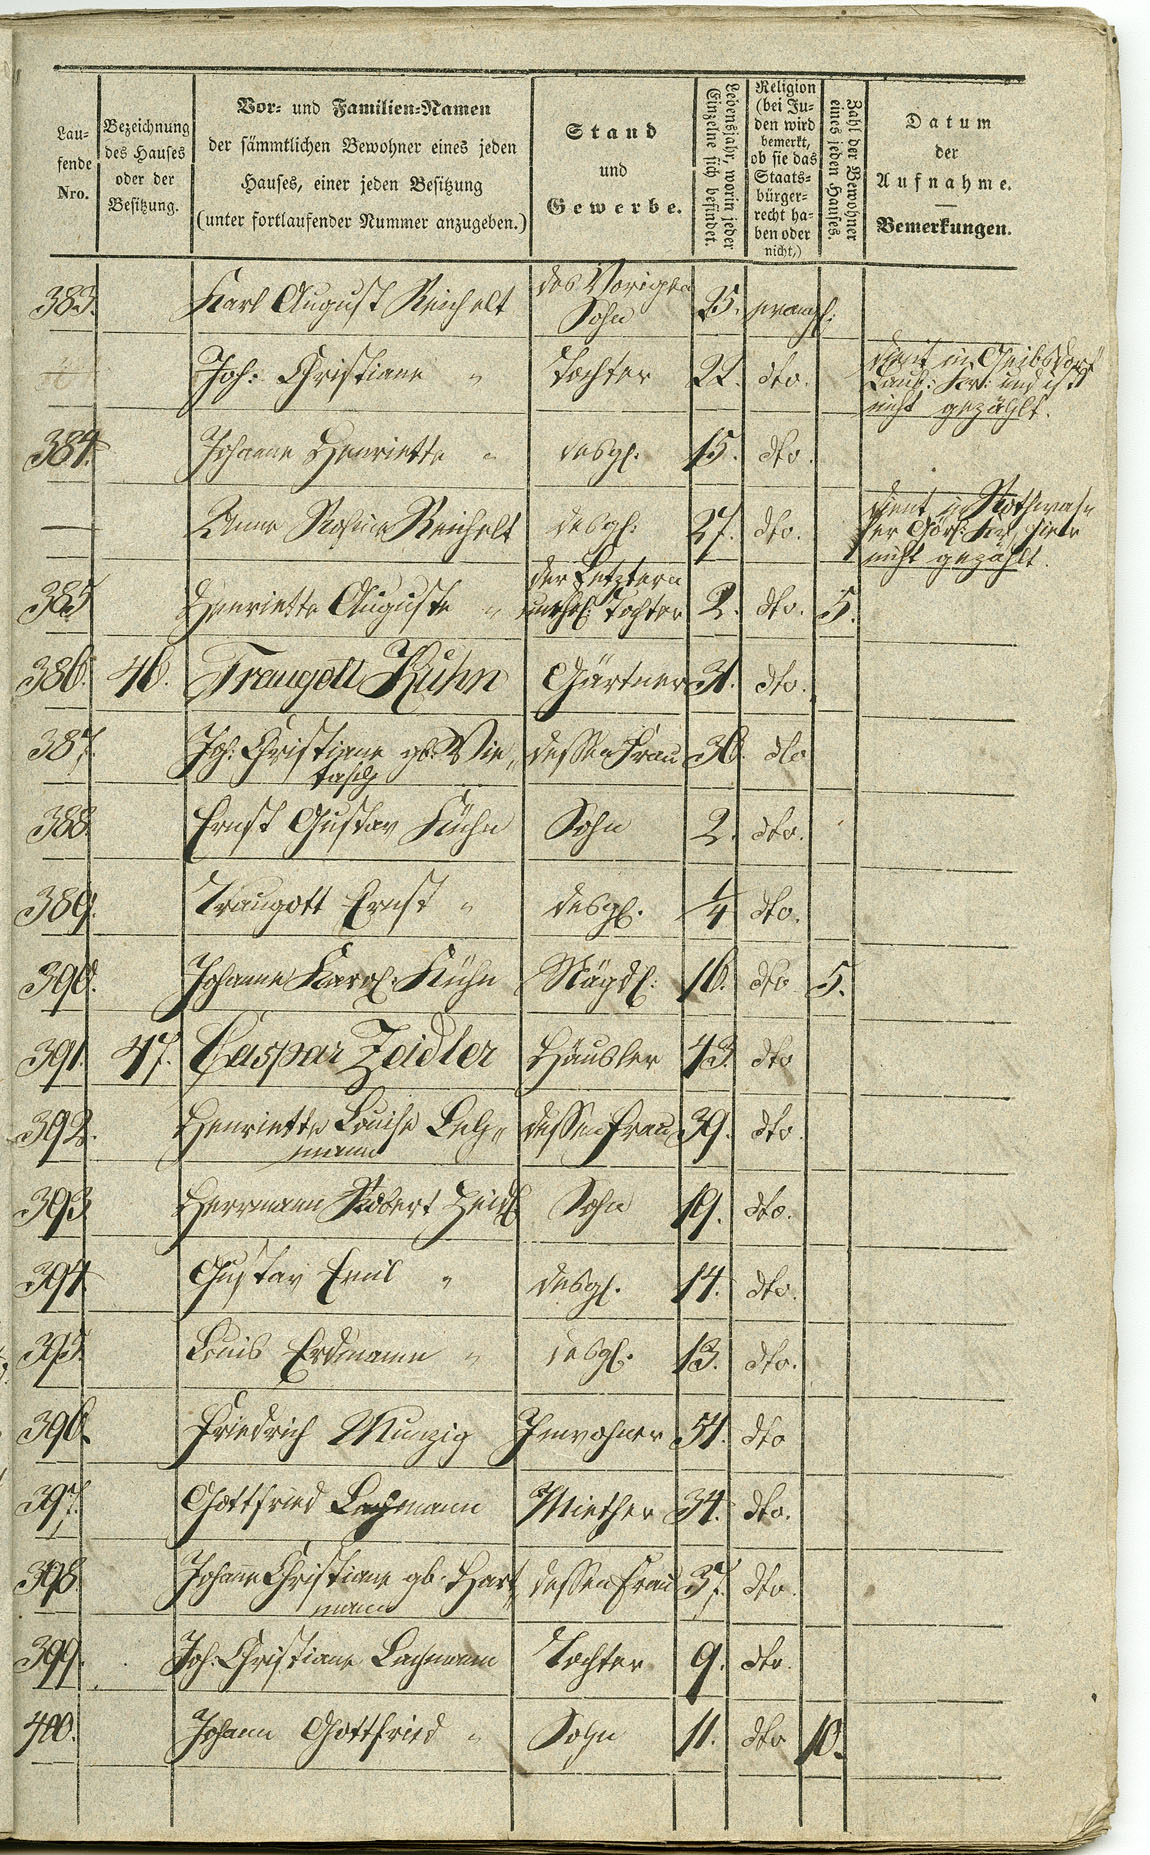 Lau-
fende
Nro.
Bezeichnung
des Hauses
oder der
Besitzung.
Vor- und Familien-Namen
der sämmtlichen Bewohner eines jeden
Hauses, einer jeden Besitzung
(unter fortlaufender Nummer anzugeben.)
Stand
und
Gewerbe.
Lebensjahr, worin jeder
Einzelne sich befindet.
Religion
(bei Ju-
den wird
bemerkt,
ob sie das
Staats-
bürger-
recht ha-
ben oder
nicht,)
Zahl der Bewohner
eines jeden Hauses.
Datum
der
Aufnahme.
Bemerkungen.
383. Karl August Reichelt des Vorigen Sohn 25. evangl:
Joh: Christiane " Tochter 22. dto. dient in Geibsdorf
Laub: Kr: und ist
nicht gezählt.
384. Johanne Henriette " desgl. 15. dto.
— Anne Rosine Reichelt desgl: 27. dto. dient in Rothwas-
ser Görl: Kr. hier
nicht gezählt.
385 Henriette Auguste " der Letztern
unehel: Tochter 2. dto. 5.
386. 46. Traugott Kühn Gärtner 31. dto.
387. Joh: Christiane gb. Vie- dessen Frau 36. dto
tasch
388. Ernst Gustav Kühn Sohn 2. dto.
389. Traugott Ernst " desgl. 1/4 dto.
390. Johanne Karol. Kühn Mägdl: 16. dto 5.
391. 47. Caspar Zeidler Häusler 43. dto
392. Henriette Louise dessen Frau 39. dto.
mann
393 Herrmann Robert Zeidl Sohn 19. dto.
394. Gustav Emil " desgl. 14. dto.
395. Louis Erdmann " desgl. 13. dto.
396. Friedrich Munzig Inwohner 54. dto
397. Gottfried Lachmann Miether 34. dto.
398 Johanne Christiane gb. Hart- dessen Frau 37. dto.
mann
399. Joh: Christiane Lachmann Tochter 9. dto.
400. Johann Gottfried " Sohn 11. dto 10.